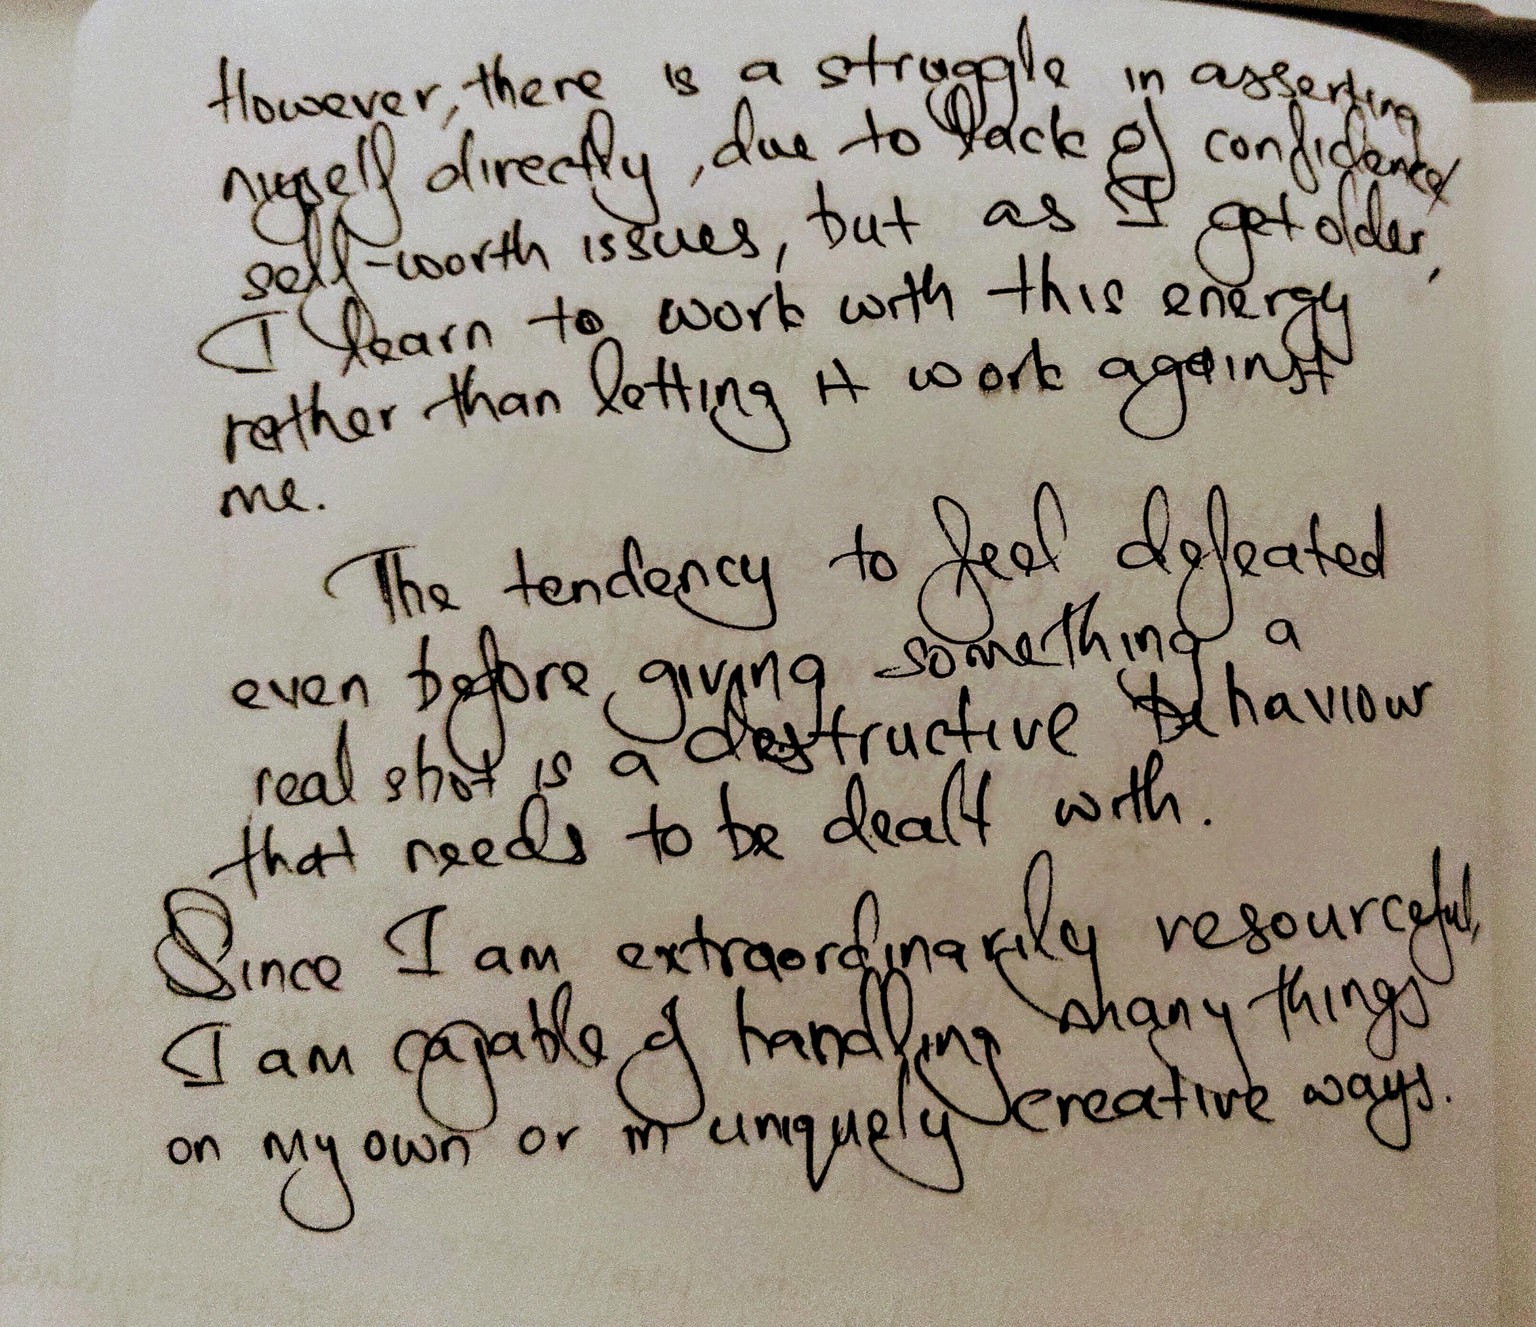 However, there is a struggle in asserting
myself directly, due to lack of confidence/
self-worth issues, but as I get older,
I learn to work with this energy
rather than letting it work against
me.
The tendency to feel defeated
even before giving something a
real shot is a destructive behaviour
that needs to be dealt with.
Since I am extraordinarily resourceful,
I am capable of handling many things
on my own or in uniquely creative ways.